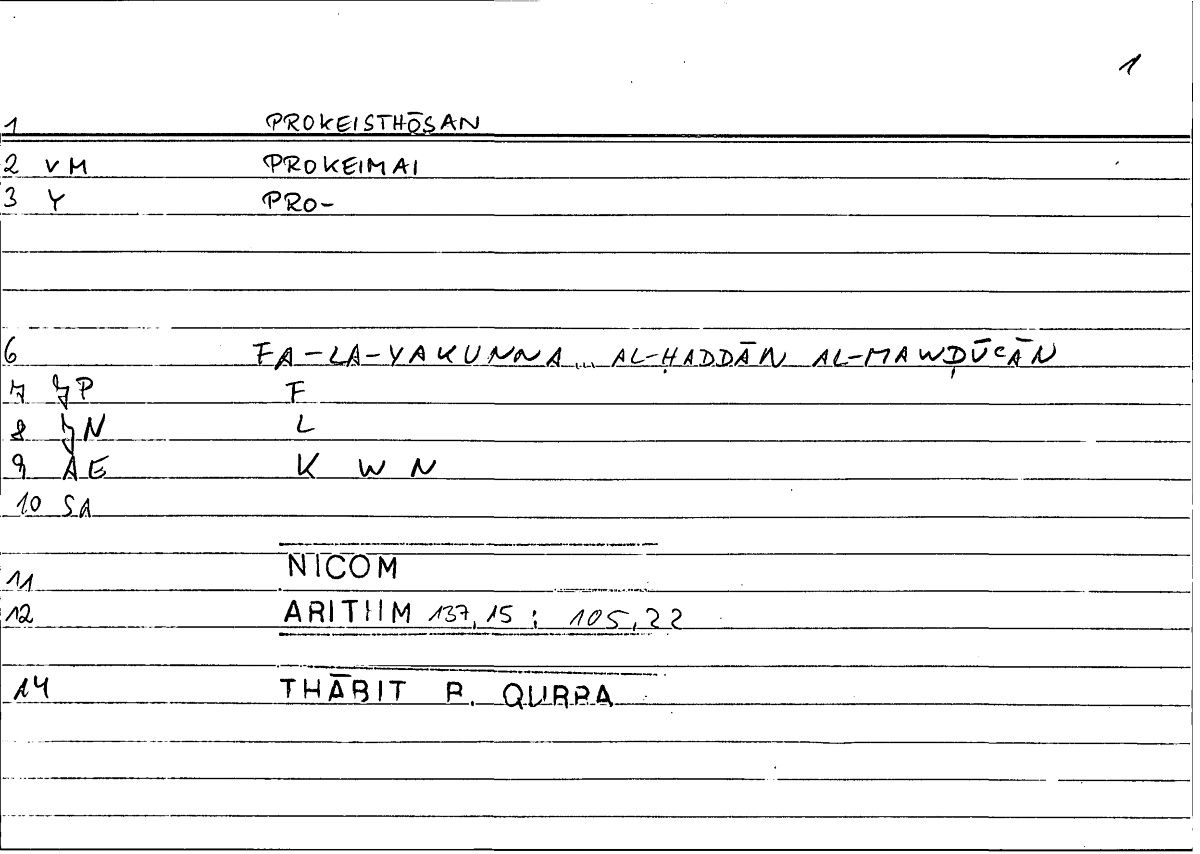 1
1 PROKEISTHŌSAN
2 VM PROKEIMAI
3 Y PRO-
6 FA-LA-YAKUNNA... AL-ḤADDĀN AL-MAWḌŪCĀN
7 JP F
8 JN L
9 AE K W N
10 SA
11 NICOM
12 ARITHM 137,15 ; 105,22
14 THĀBIT B. QURRA